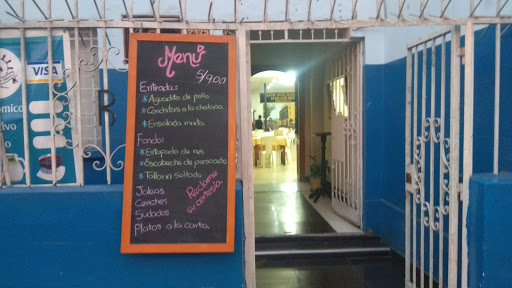 Menú
S/9.00
Entradas:
*Aguadito de pollo
*Conchitas a la chalaca
*Ensalada mixta
Fondo:
*Estofado de res
*Escabeche de pescado
*Tallarin saltado
Jaleas
Ceviches
Sudados
Platos a la carta
Reclame su cortesía
VISA